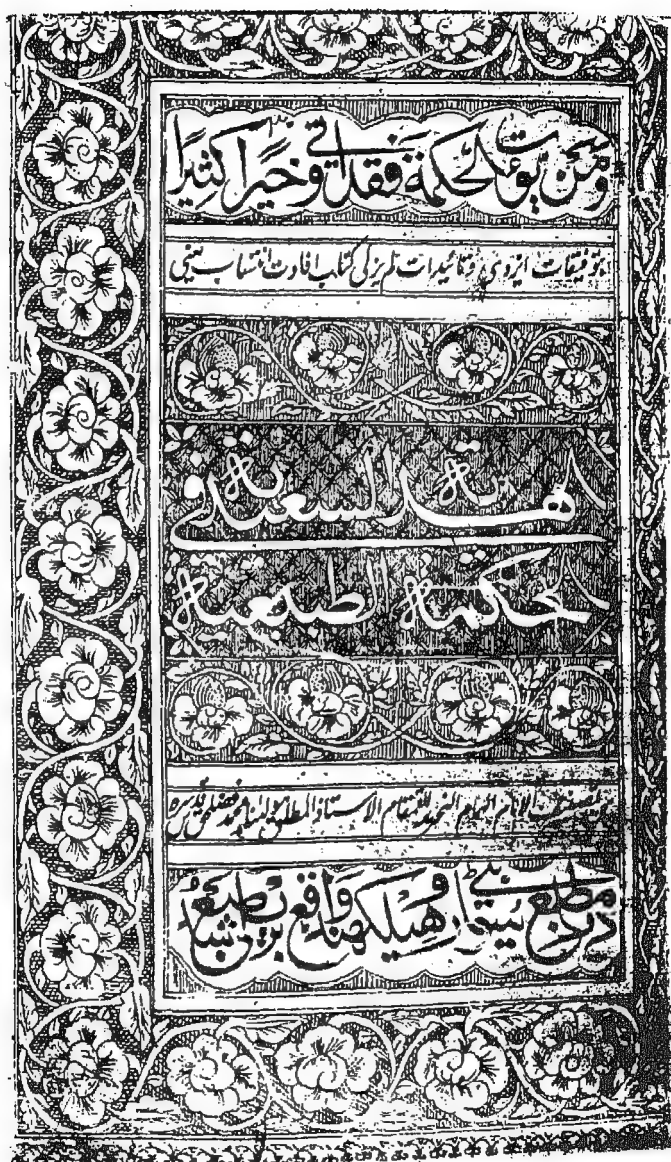 ومن يؤت الحكمة فقد اوتي خيرا كثيرا
بتوفیقات ایزدی و تائیدات لم یزلی کتاب افادت انتساب یعنی
الهدية السعيدية في
الحكمة الطبيعية
تصنیف الامام الهمام النحرير القمقام الاستاذ المطلق مولانا محمد فضل حق قدس سره
در مطبع روهیلکهند واقع بریلی طبع شد